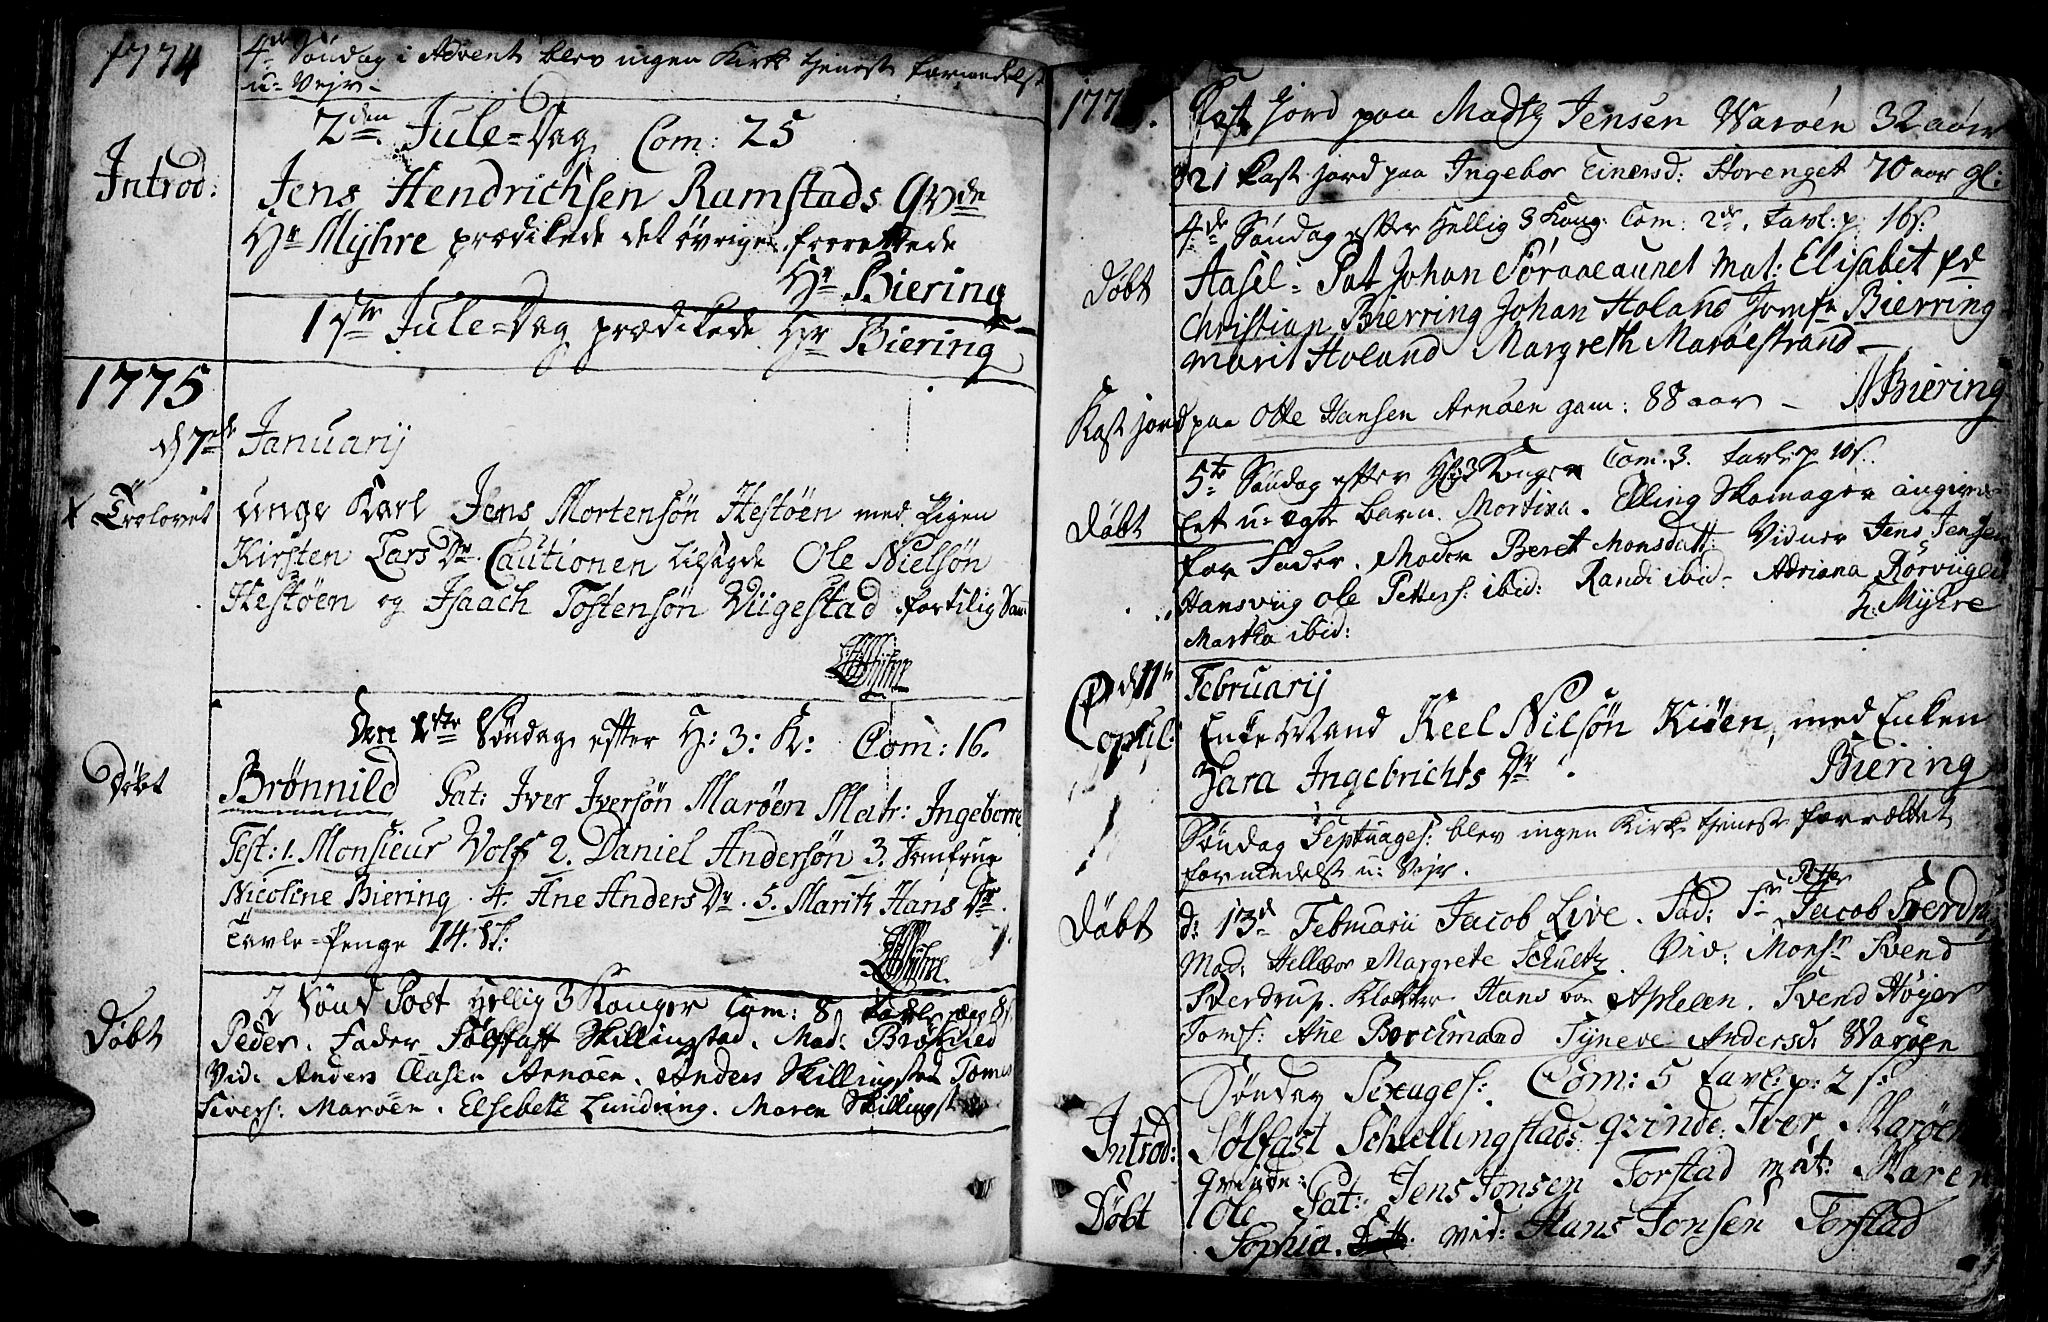 1774
4de Søndag i Advent blev ingen Kirke tjeneste formedelst
u- Vejr-
2den Jule=Dag Com: 25
Introd:
Jens Hendrichsen Ramstads Qvde
Hr Myhre prædikede det øvrige forrettede
Hr Biering
1ste Jule=Dag prædikede Hr Biering
1775
d 7de Januarij
Trolovet
unge Karl Jens Mortensøn Hestøen med Pigen
Kirsten Lars Dr. Cautionen Ole Nielsøn
Hestøen og Isaach Tostensøn Viigestad
Myhre
Den 1ste Søndag efter H: 3: K: Com: 16.
Døbt
Brønnild Pat: Iver Iversøn Marøen Matr: Ingeborre
Test: 1. Monsieur Wolf 2. Daniel Andersøn 3. Jomfrue
Nicoline Biering. 4. Ane Anders Dr. 5. Marith Hans Dr.
Tavle=Penge 14. sk:
Myhre
2 Sønd Post Hellig 3 Konger Com: 8
Døbt
Peder. Fader Sølffast Skillingstad. Mod: Brønild
Vid: Anders Clasen Arnøen. Anders Skillingstad Tomes
Sivers: Marøen. Elsebeth Lundring. Maren Skillingst
177
Kast Jord paa Madtz Jensen Warøen 32 aar
d 21 Kast jord paa Ingebor Einersd: Horenget 70 aar gl:
4de Søndag efter Hellig 3 Kong: Com: 2de. Tavl: p. 16 s:
Døbt
Aasel= Pat Johan Søraaeaunet Mat: Elisabet
Christian Bierring Johan Holand Jomfr Bierring
Marit Holand Margreth Marøestrand-
Kast jord paa Otte Hansen Arnøen gam: 88 aar - Biering
5te Søndag efter 3 Konger Com: 3. Tavle p 10 s.
Døbt
Eet u- egte barn. Martina. Elling Skomager angiven
for Fader. Moder Beret Monsdatt: Vidner Jens Jensen
Hansviig Ole Petters: ibid: Randi ibid- Adriana Rørviigen
Martha ibid:
H: Myhre
d 11te Februarij
Copul:
EnkeMand Keel Nilsøn Kiøen, med Enken
Zara Ingebrichts Dr. Biering
Søndag Septuages: blev ingen Kirke tjeneste forrettet
formedelst u: Vejr.
Døbt
d: 13de Februarii Jacob Live. Fad: Sr Petter Jacob Sverdr
Mod: Hellebor Margrete Schultz. Vid: Monsr Svend
Sverdrup. Klokker Hans von Aphelen. Svend Høyer
Jomf: Ane Borchmand Tyneve Andersd: Warøen
Søndag Sexages: Com: 5 Tavl: p: 2 s:
Introd:
Sølfast Schillingstads qvinde: Iver Marøen
qvinde:
Døbt
Ole Pat: Jens Jonsen Forstad Mat: Maren
Sophia. Vid: Hans Jonsen Forstad